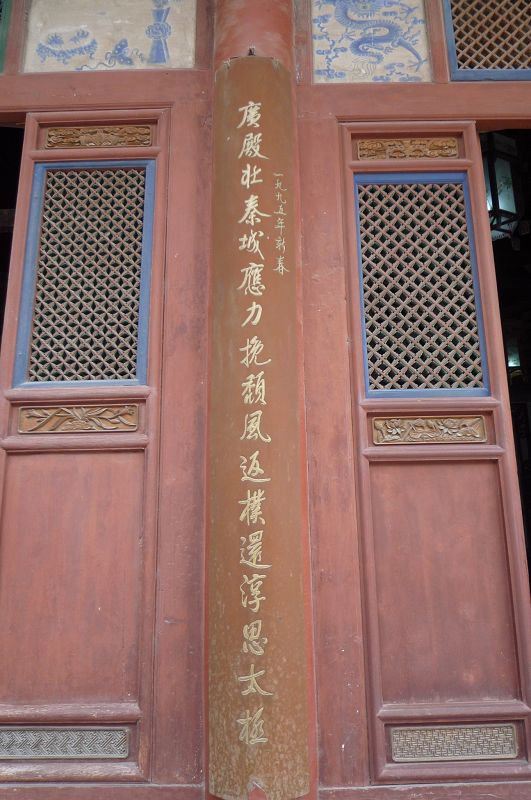 一九九五年新春
廣殿壯秦城應力挽頹風返樸還淳思太極